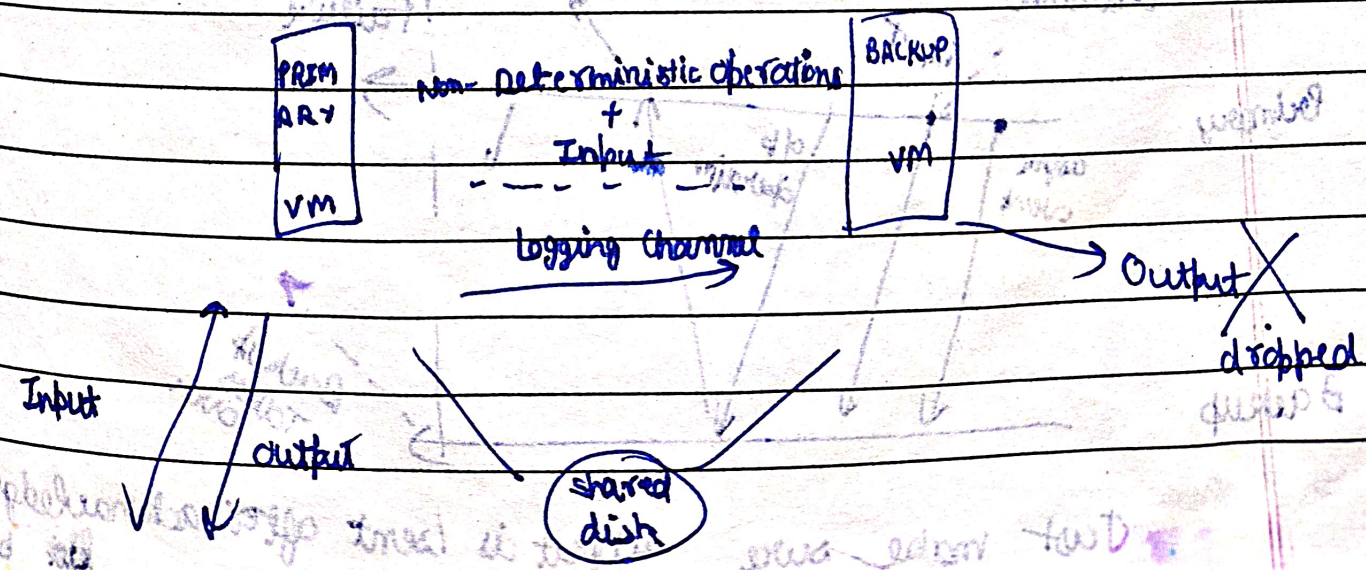 PRIM
ARY
VM
Non-Deterministic Operations
+
Input
Logging Channel
BACKUP
VM
Output
dropped
Input
Output
shared
disk